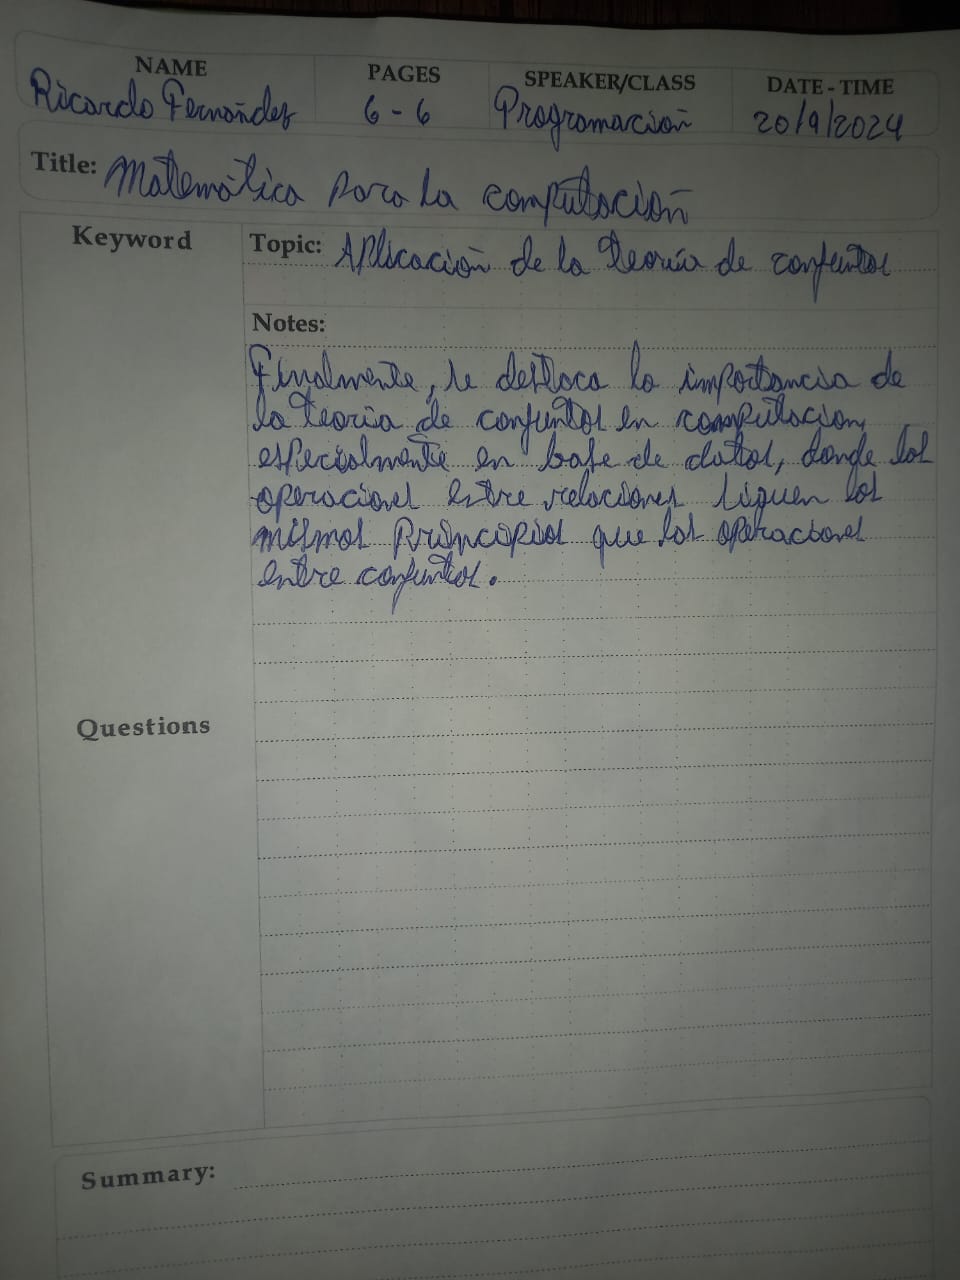 NAME PAGES SPEAKER/CLASS DATE - TIME
Ricardo Fernández 6 - 6 Programación 20/9/2024
Title: Matemática para la computación
Keyword
Topic: Aplicación de la teoría de conjuntos
Notes:
Finalmente, se destaca la importancia de
la teoría de conjuntos en computación,
especialmente en base de datos, donde las
operaciones entre relaciones siguen los
mismos principios que las operaciones
entre conjuntos.
Questions
Summary: